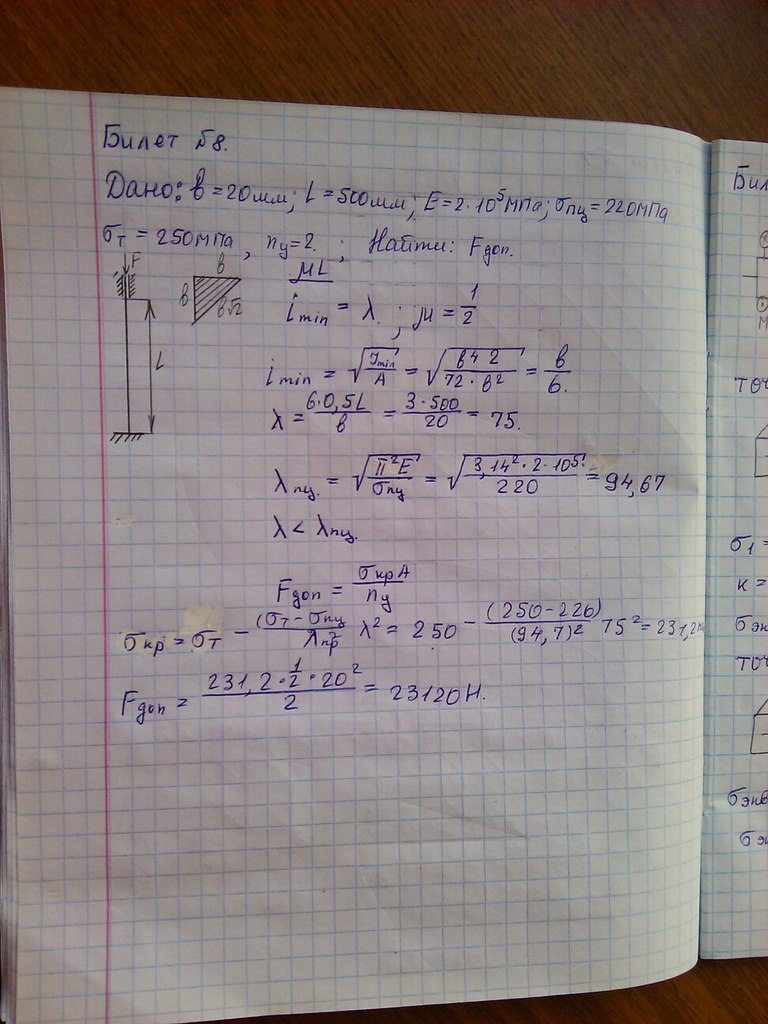 Билет №8.
Дано: в = 20мм; L = 500мм; E = 2·10⁵МПа; σпц = 220МПа
σт = 250МПа, nу = 2. ; Найти: Fдоп.
F
в
в
в√2
L
μL / imin = λ ; μ = 1/2
imin = √(Jmin/A) = √(в⁴ 2 / 72·в²) = в/6.
λ = 6·0,5L / в = 3·500 / 20 = 75.
λпц. = √(π²E / σпц) = √(3,14²·2·10⁵ / 220) = 94,67
λ < λпц.
Fдоп = σкрA / nу
σкр = σт − (σт − σпц / λпр²) λ² = 250 − (250−220) / (94,7)² 75² = 231,2
Fдоп = 231,2·1/2·20² / 2 = 23120Н.
Бил
М
точ
σ1 =
к =
σэк
точ
σэкв
σэк